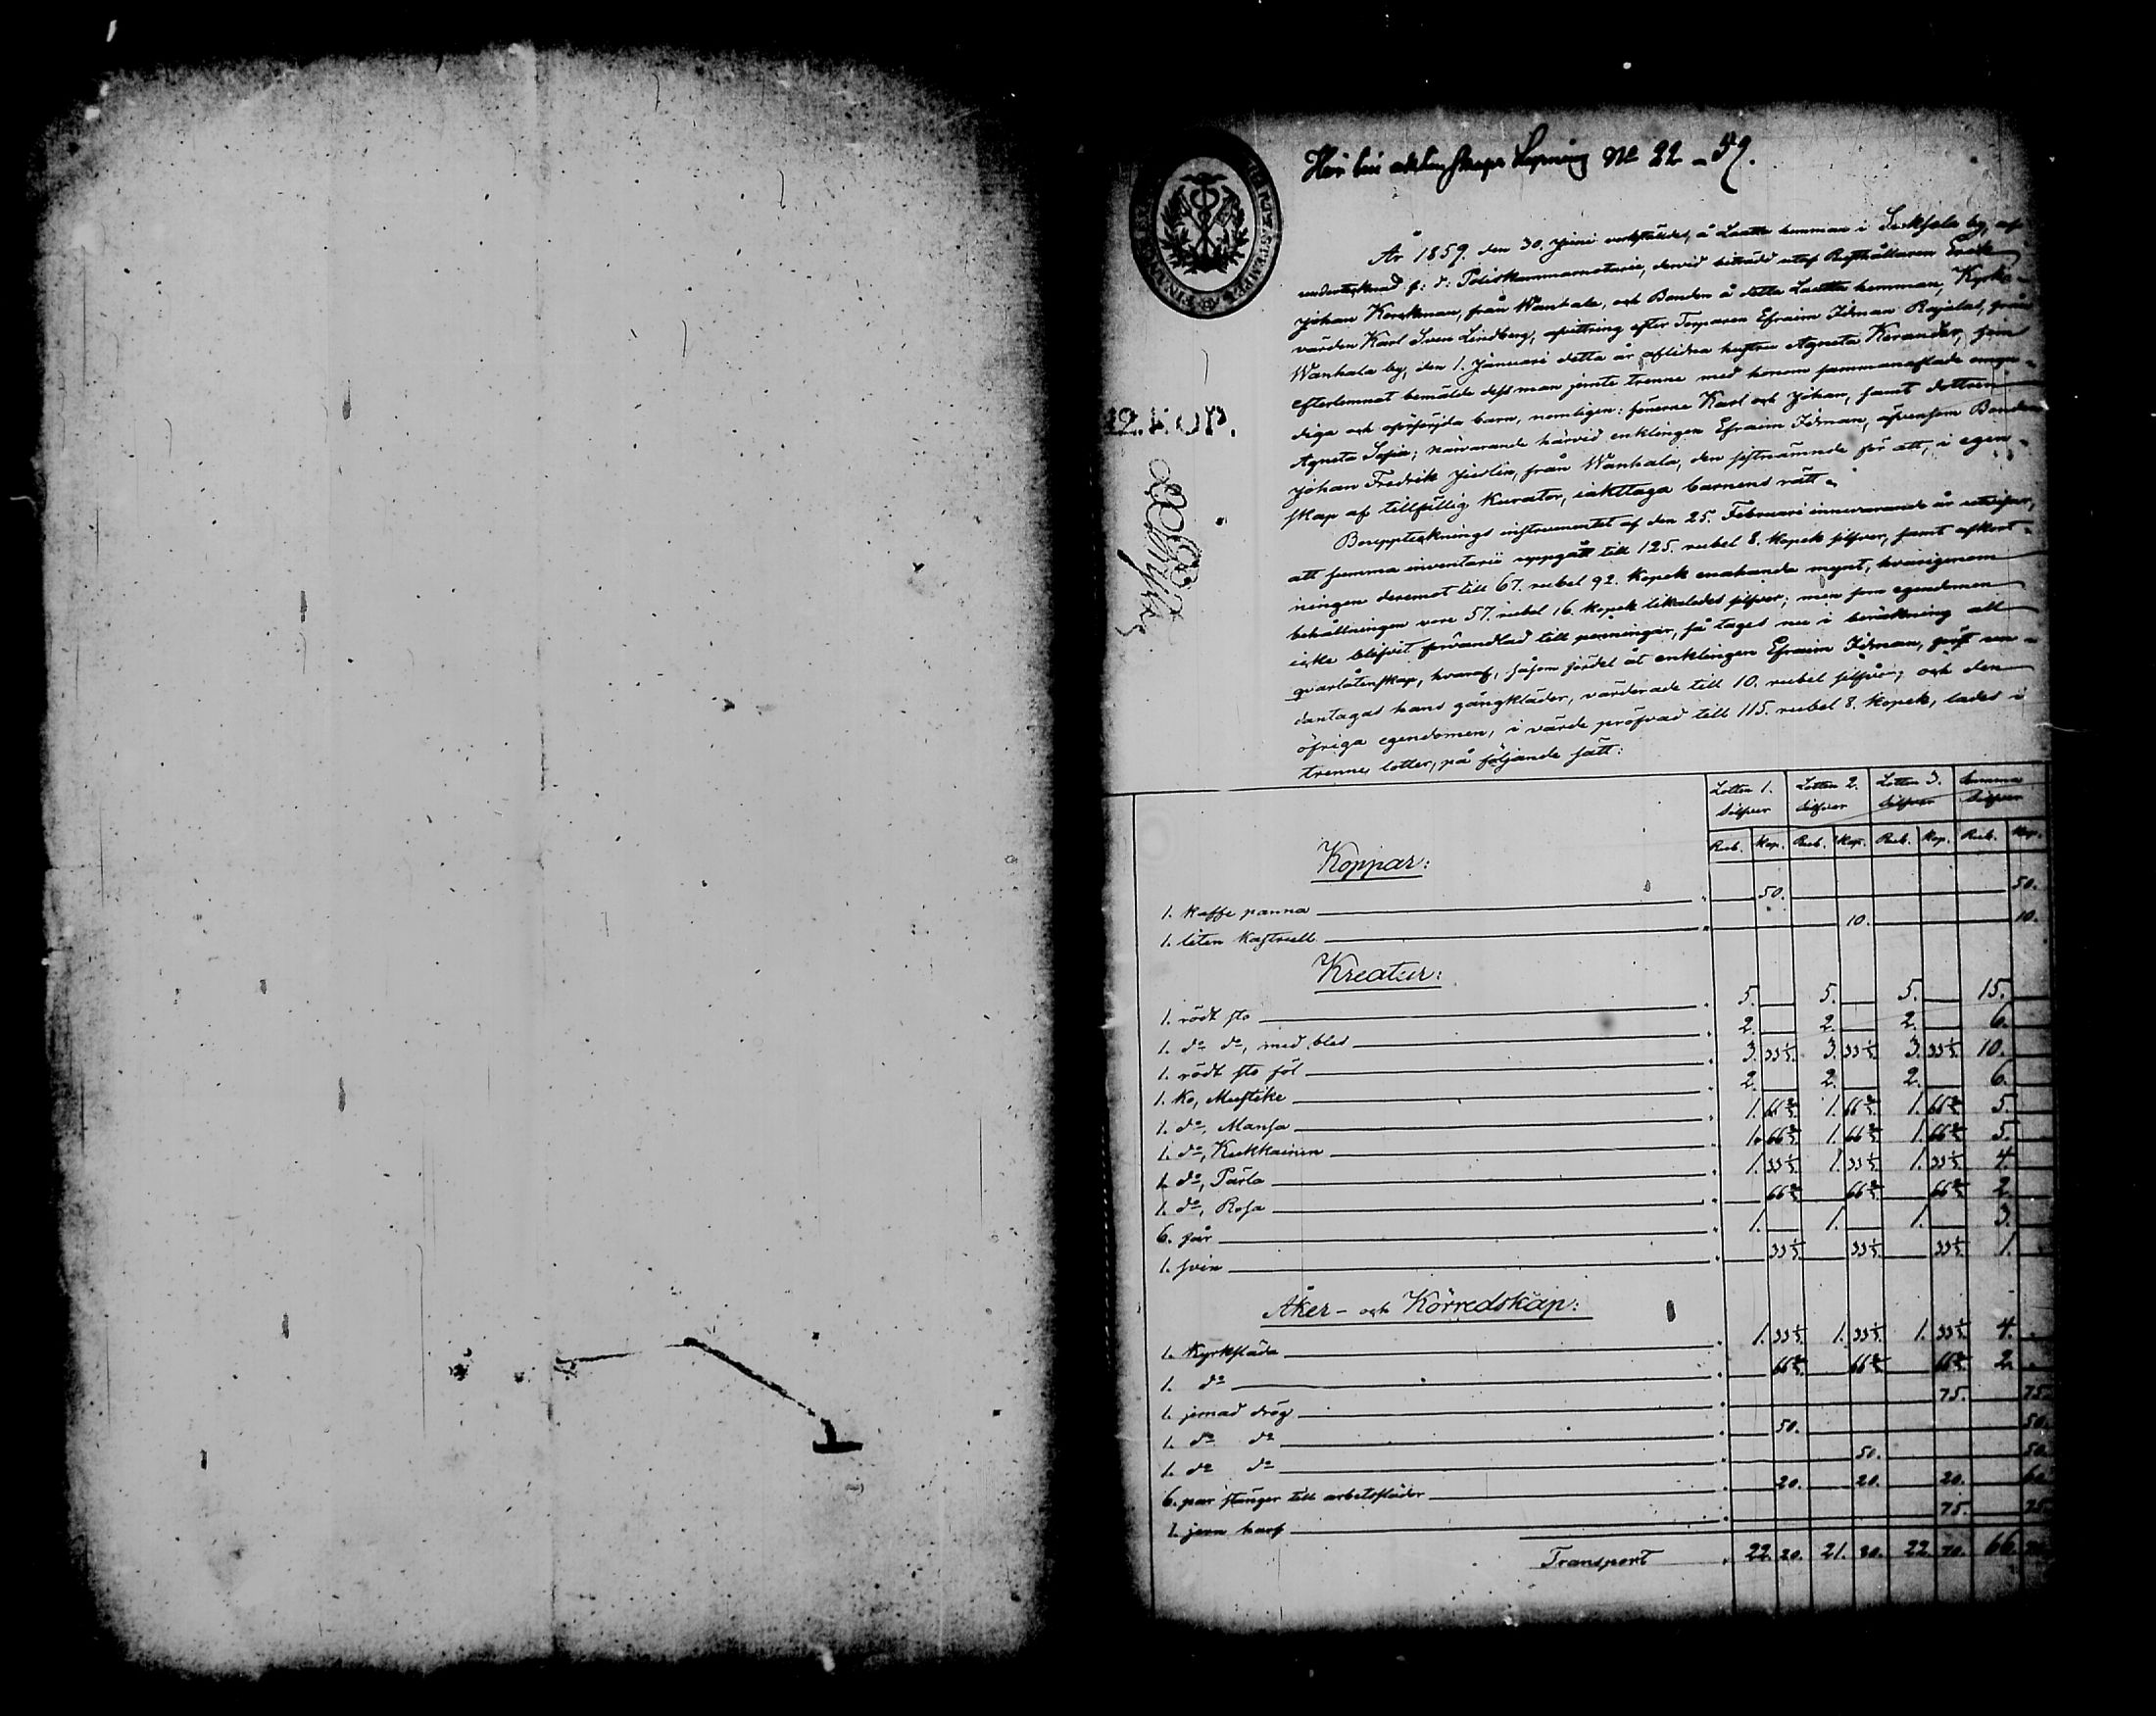 Hör till aktenskaps Lysning No 22 - 59.
År 1859. den 30. Juni verkställdes, å Laatta hemman i by, af
undertecknad f: d: Poliskammarnotarie, dervid biträdd utaf Besiktåldaren Erik
Johan Korckman, från Wanhala, och Bonden å detta Laatta hemman, Kyrko-
värden Karl Sven Lindberg, afvittring efter Torparen Efraim Idman Rajalas, från
Wanhala by, den 1. Januari detta år aflidna hustru Agneta Kerander, som
efterlemnat bemälde dess man jemte trenne med honom sammanaflade omyn-
diga och oförsörjda barn, nemligen: sönerne Karl och Johan, samt dottren
Agneta Sofia; närvarande härvid enklingen Efraim Idman, äfvensom Bonden
Johan Fredrik Judlin, från Wanhala, den sistnämnde för att, i egen-
skap af tillfällig Kurator, iakttaga barnens rätt.
Boupptecknings instrumentet af den 25. Februari innevarande år utvisar,
att summa inventarii uppgått till 125. rubel 8. kopek silfver, samt afkort-
ningen deremot till 67. rubel 92. kopek enahanda mynt, hvarigenom
behållningen vore 57. rubel 16. kopek likaledes silfver; men som egendomen
icke blifvit förvandlad till penningar, så tages nu i beräkning all
qvarlåtenskap, hvaraf, såsom fördel åt enklingen Efraim Idman, först un-
dantagas hans gångkläder, värderade till 10. rubel silfver; och den
öfriga egendomen, i värde pröfvad till 115. rubel 8. kopek, lades i
trenne lotter, på följande sätt:
12. KOP.
Lotten 1. Lotten 2. Lotten 3. Summa
Silfver Silfver Silfver Silfver
Rub. Kop. Rub. Kop. Rub. Kop. Rub. Kop.
Koppar:
1. kaffe panna 50. 50.
1. liten kastrull 10. 10.
Kreatur:
1. rödt sto 5. 5. 5. 15.
1. do do, med bles 2. 2. 2. 6.
1. rödt sto föl 3. 33 1/3. 3. 33 1/3. 3. 33 1/3. 10.
1. ko, Mustike 2. 2. 2. 6.
1. do, Mansa 1. 66 2/3. 1. 66 2/3. 1. 66 2/3. 5.
1. do, Kukkainen 1. 66 2/3. 1. 66 2/3. 1. 66 2/3. 5.
1. do, Pärla 1. 33 1/3. 1. 33 1/3. 1. 33 1/3. 4.
1. do, Rosa 66 2/3. 66 2/3. 66 2/3. 2.
6. får 1. 1. 1. 3.
1. svin 33 1/3. 33 1/3. 33 1/3. 1.
Åker- och Körredskap:
1. Kyrksläda 1. 33 1/3. 1. 33 1/3. 1. 33 1/3. 4.
1. do 66 2/3. 66 2/3. 66 2/3. 2.
1. jernad drög 75. 75.
1. do do 50. 50.
1. do do 50. 50.
6. par stänger till arbetsslädor 20. 20. 20. 60.
1. jern harf 75. 75.
Transport 22. 20. 21. 80. 22. 70. 66. 70.